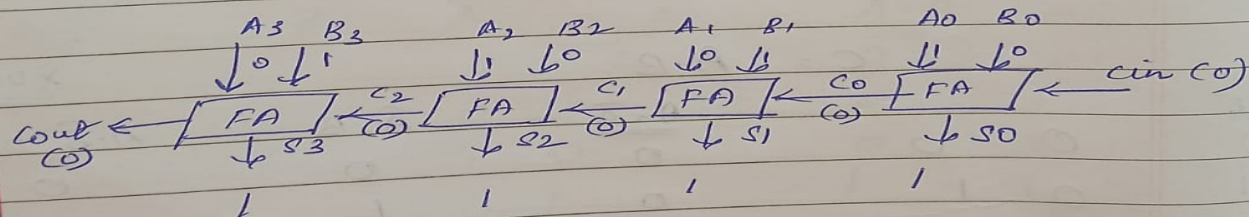 A3 B3 A2 B2 A1 B1 A0 B0
0 1 1 0 0 1 1 0 cin (0)
Cout (0) FA C2 (0) FA C1 (0) FA C0 (0) FA
S3 S2 S1 S0
1 1 1 1